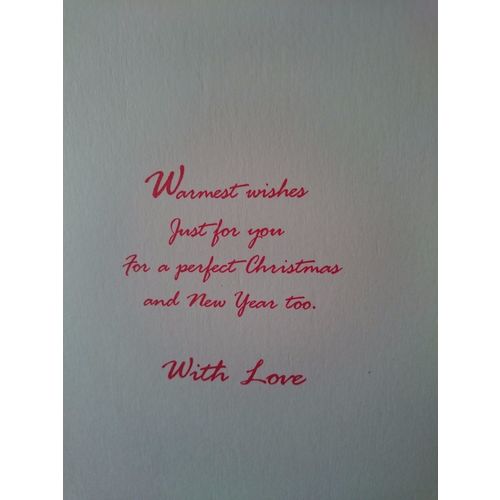 Warmest wishes
Just for you
For a perfect Christmas
and New Year too.
With Love